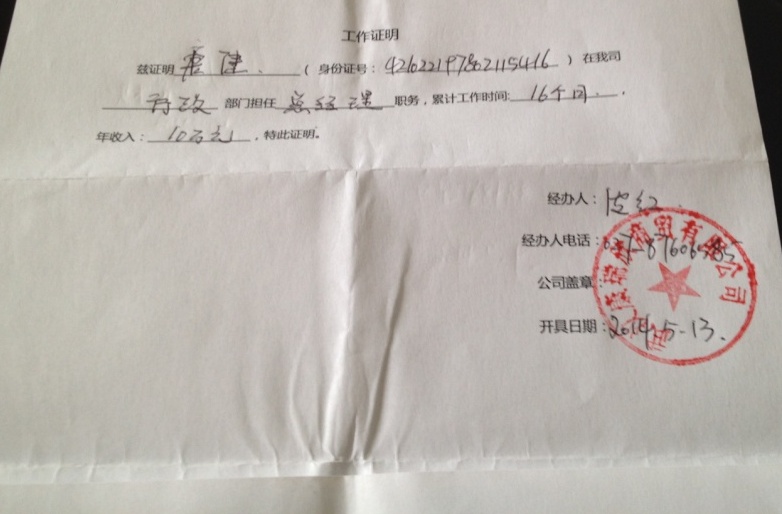 工作证明
兹证明 健 （身份证号：421022197802115416）在我司
行政 部门担任 总经理 职务，累计工作时间：16个月，
年收入：10万元，特此证明。
经办人：
经办人电话：
公司盖章：
开具日期：2014.5-13.
商贸有限公司